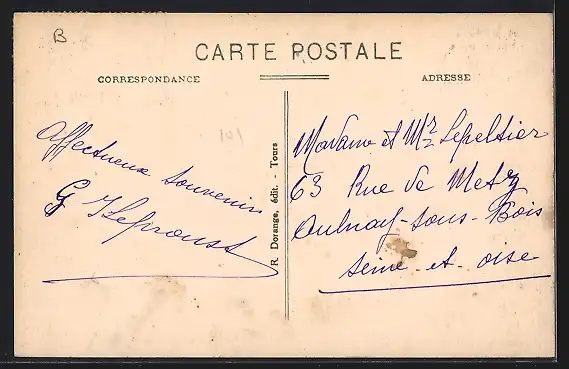 B
CARTE POSTALE
CORRESPONDANCE
ADRESSE
101
Affectueux souvenir
G
R. Dorange, édit. - Tours
Madame et Mr Lepeltier
63 Rue de Metz
Aulnay-sous-Bois
Seine-et-oise